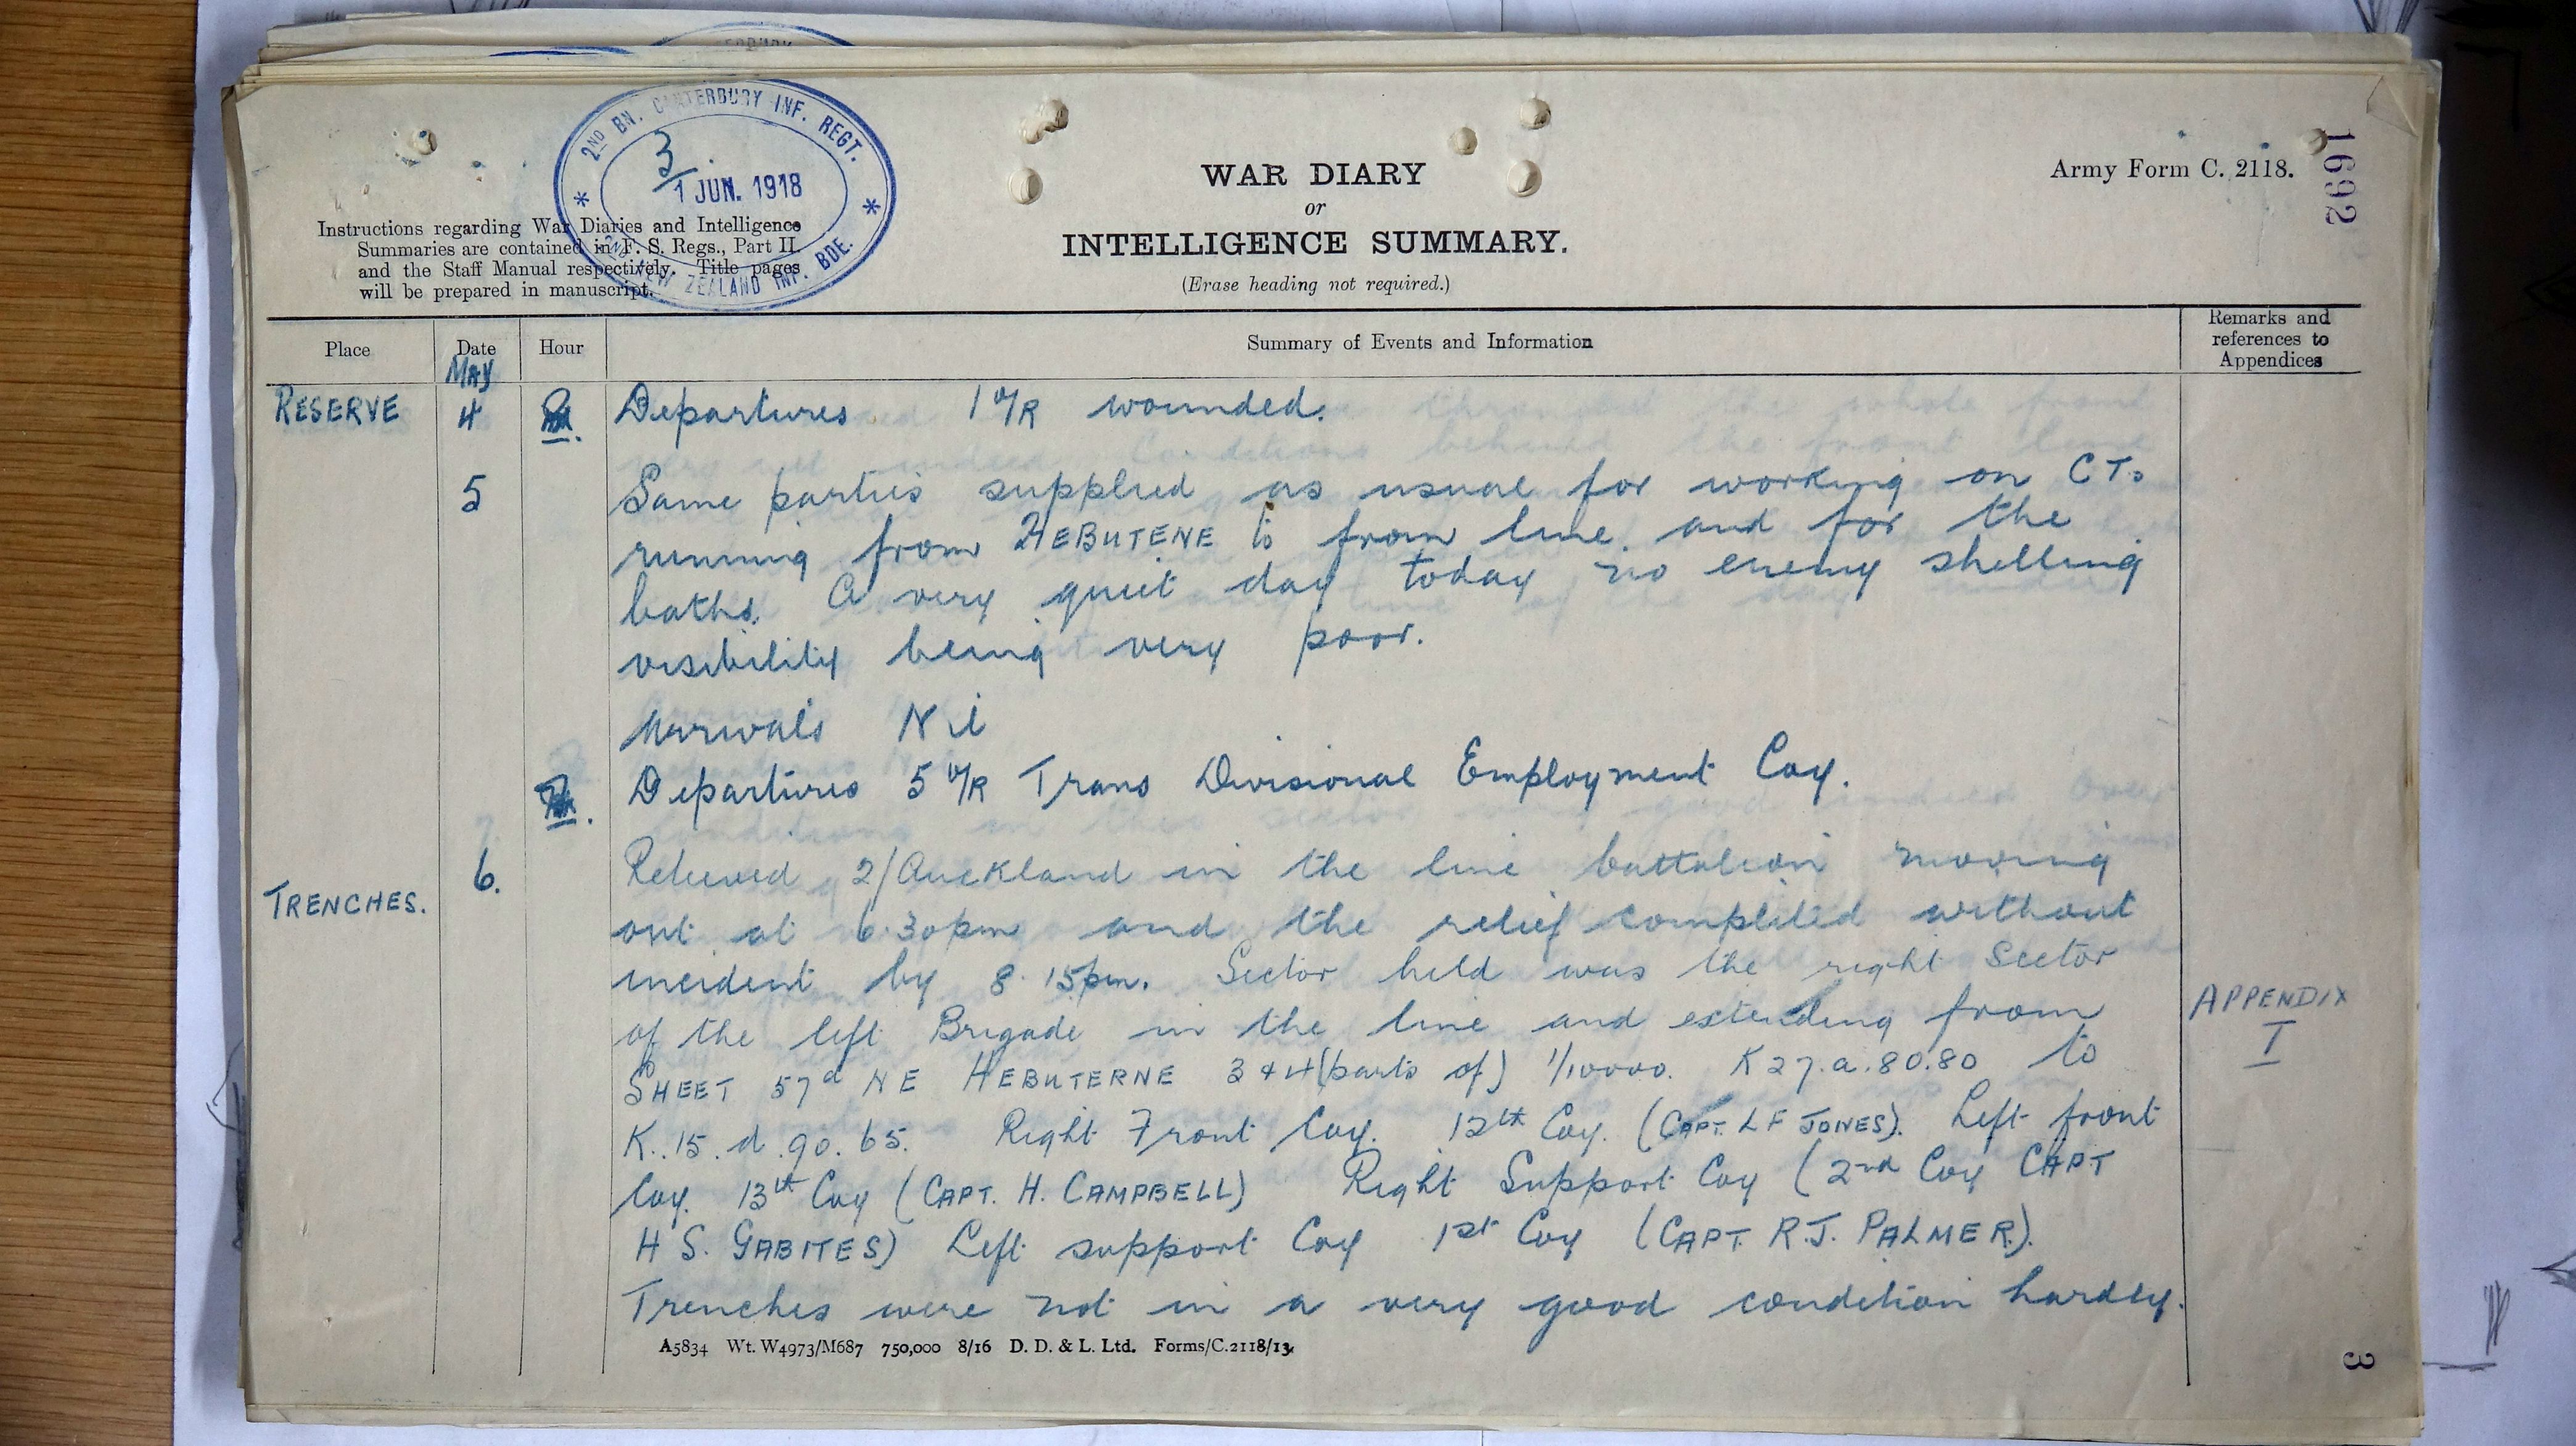 2ND BN. CANTERBURY INF. REGT.
3/
1 JUN. 1918
2ND NEW ZEALAND INF. BDE.
Instructions regarding War Diaries and Intelligence
Summaries are contained in F. S. Regs., Part II
and the Staff Manual respectively. Title pages
will be prepared in manuscript.
WAR DIARY
or
INTELLIGENCE SUMMARY.
(Erase heading not required.)
Army Form C. 2118.
1692
Place Date Hour Summary of Events and Information Remarks and references to Appendices
MAY
RESERVE 4 Departures 1 O/R wounded.
5 Same parties supplied as usual for working on C Ts
running from HEBUTENE to from line. and for the
baths. A very quiet day today no enemy shelling
visibility being very poor.
Arrivals Nil
Departures 5 O/R Trans Divisional Employment Coy.
TRENCHES. 6. Relieved 2/Auckland in the line battalion moving
out at 6.30pm and the relief completed without
incident by 8.15pm. Sector held was the right Sector
of the left Brigade in the line and extending from
APPENDIX
I
SHEET 57d NE HEBUTERNE 3 & 4 (parts of) 1/10000. K 27.a.80.80 to
K.15.d.90.65. Right Front Coy. 12th Coy. (CAPT. L F JONES). Left front
Coy. 13th Coy (CAPT. H. CAMPBELL) Right Support Coy (2nd Coy CAPT
H S. GABITES) Left support Coy 1st Coy (CAPT. R.J. PALMER).
Trenches were not in a very good condition hardly.
A5834 Wt. W4973/M687 750,000 8/16 D. D. & L. Ltd. Forms/C.2118/13.
3